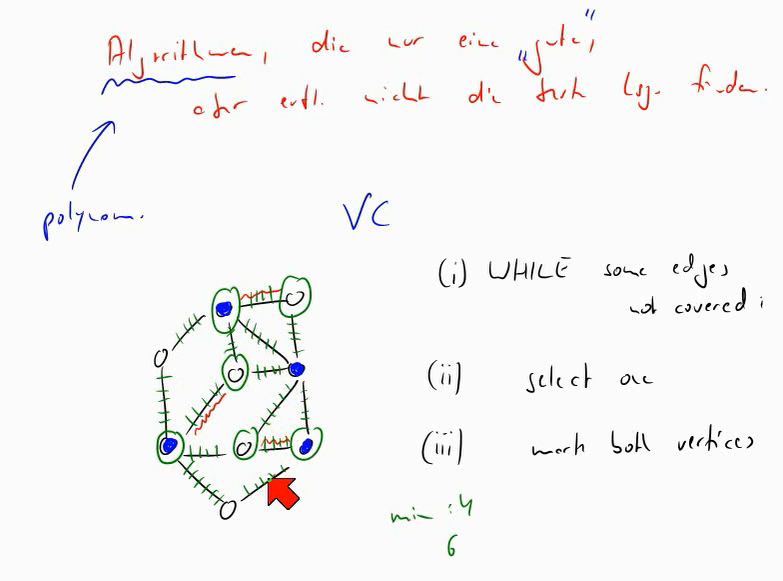 Algorithmen, die nur eine „gute“,
aber evtl. nicht die beste Lsg. finden.
polynom.
VC
(i) WHILE some edges
not covered :
(ii) select one
(iii) mark both vertices
min : 4
6